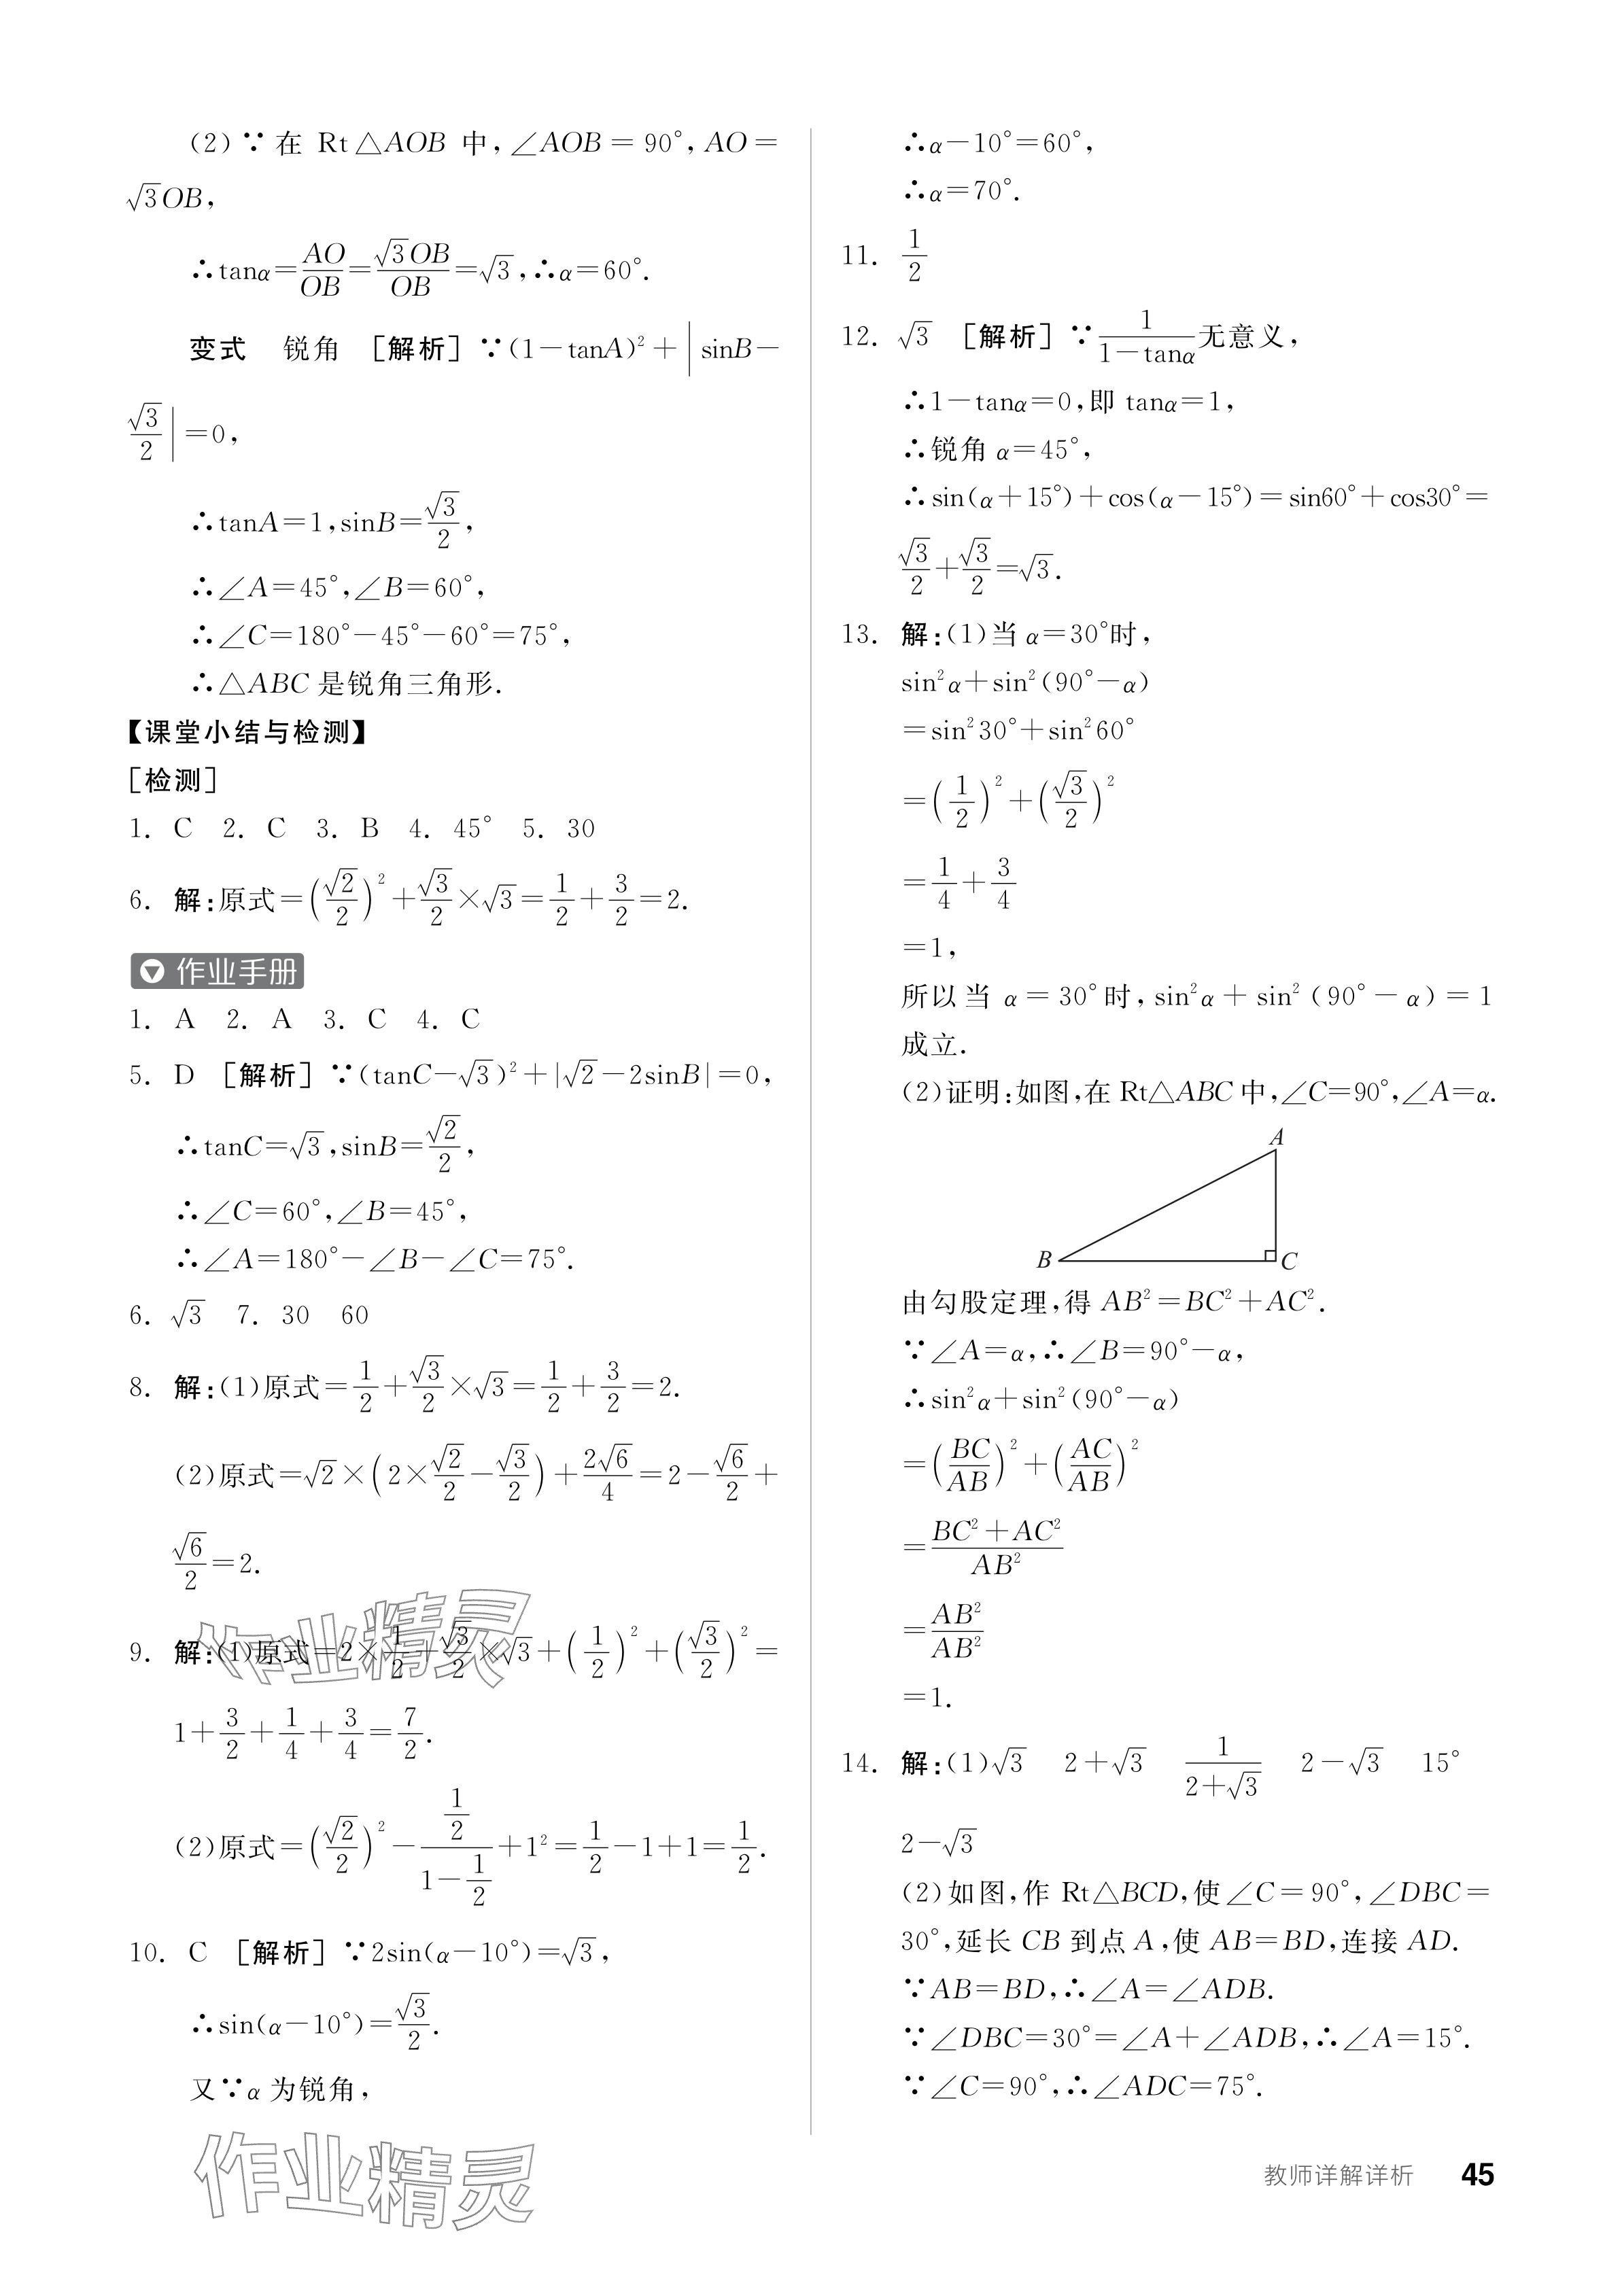 (2)∵在 Rt△AOB 中,∠AOB=90°,AO=
√3OB,
∴tanα=AO/OB=√3OB/OB=√3,∴α=60°.
变式 锐角 [解析]∵(1-tanA)²+|sinB-
√3/2|=0,
∴tanA=1,sinB=√3/2,
∴∠A=45°,∠B=60°,
∴∠C=180°-45°-60°=75°,
∴△ABC 是锐角三角形.
【课堂小结与检测】
[检测]
1. C 2. C 3. B 4. 45° 5. 30
6. 解:原式=(√2/2)²+√3/2×√3=1/2+3/2=2.
作业手册
1. A 2. A 3. C 4. C
5. D [解析]∵(tanC-√3)²+|√2-2sinB|=0,
∴tanC=√3,sinB=√2/2,
∴∠C=60°,∠B=45°,
∴∠A=180°-∠B-∠C=75°.
6. √3 7. 30 60
8. 解:(1)原式=1/2+√3/2×√3=1/2+3/2=2.
(2)原式=√2×(2×√2/2-√3/2)+2√6/4=2-√6/2+
√6/2=2.
9. 解:(1)原式=2×1/2+√3/2×√3+(1/2)²+(√3/2)²=
1+3/2+1/4+3/4=7/2.
(2)原式=(√2/2)²-(1/2)/(1-1/2)+1²=1/2-1+1=1/2.
10. C [解析]∵2sin(α-10°)=√3,
∴sin(α-10°)=√3/2.
又∵α 为锐角,
∴α-10°=60°,
∴α=70°.
11. 1/2
12. √3 [解析]∵1/(1-tanα)无意义,
∴1-tanα=0,即 tanα=1,
∴锐角 α=45°,
∴sin(α+15°)+cos(α-15°)=sin60°+cos30°=
√3/2+√3/2=√3.
13. 解:(1)当 α=30°时,
sin²α+sin²(90°-α)
=sin²30°+sin²60°
=(1/2)²+(√3/2)²
=1/4+3/4
=1,
所以当 α=30°时,sin²α+sin²(90°-α)=1
成立.
(2)证明:如图,在 Rt△ABC 中,∠C=90°,∠A=α.
A
B
C
由勾股定理,得 AB²=BC²+AC².
∵∠A=α,∴∠B=90°-α,
∴sin²α+sin²(90°-α)
=(BC/AB)²+(AC/AB)²
=(BC²+AC²)/AB²
=AB²/AB²
=1.
14. 解:(1)√3 2+√3 1/(2+√3) 2-√3 15°
2-√3
(2)如图,作 Rt△BCD,使∠C=90°,∠DBC=
30°,延长 CB 到点 A,使 AB=BD,连接 AD.
∵AB=BD,∴∠A=∠ADB.
∵∠DBC=30°=∠A+∠ADB,∴∠A=15°.
∵∠C=90°,∴∠ADC=75°.
作业精灵
作业精灵
教师详解详析 45